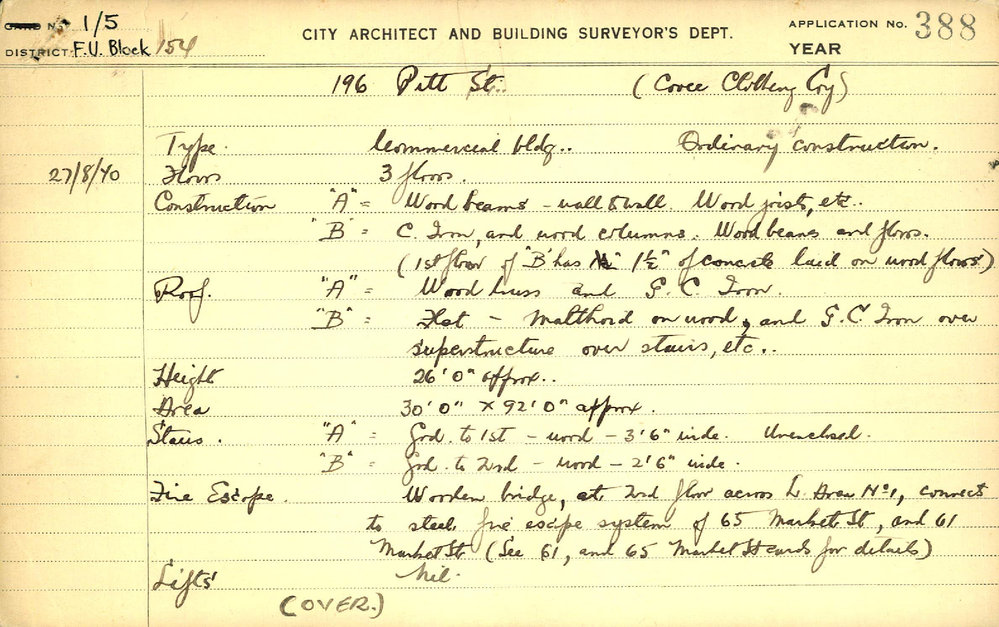 CARD No. 1/5
CITY ARCHITECT AND BUILDING SURVEYOR'S DEPT.
APPLICATION No. 388
DISTRICT F.U. Block 154
YEAR
196 Pitt St. (Covee Clothing Coy)
Type. Commercial bldg.. Ordinary construction.
27/8/40 Floors 3 floors.
Construction "A" = Wood beams - wall to wall. Wood joists, etc..
"B" = C. Iron, and wood columns. Wood beams and floors.
(1st floor of "B" has 1½" of concrete laid on wood floors.)
Roof. "A" = Wood truss and G. C. Iron.
"B" = Flat - Malthoid on wood, and G.C. Iron over
superstructure over stairs, etc..
Height 26'0" approx..
Area 30'0" x 92'0" approx.
Stairs. "A" = Grd. to 1st - wood - 3'6" wide. Unenclosed.
"B" = Grd. to 2nd - wood - 2'6" wide.
Fire Escape. Wooden bridge, at 2nd floor across L. Area No 1, connects
to steel fire escape system of 65 Market St, and 61
Market St (See 61, and 65 Market St cards for details)
Lifts Nil.
(OVER.)